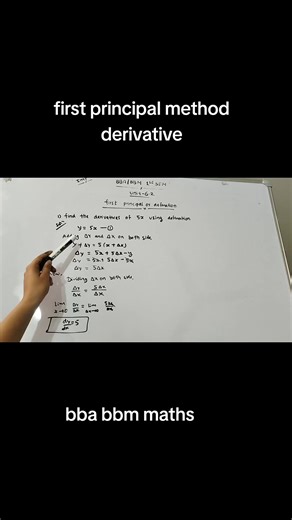 first principal method
derivative
BBA/BBM 1st SEM
Unit-6.2
first principal or defination
Q find the derivatives of 5x using defination
y = 5x —①
Adding Δy and Δx on both side
y + Δy = 5(x+Δx)
Δy = 5x + 5Δx - y
Δy = 5x + 5Δx - 5x
Δy = 5Δx
Dividing Δx on both side
Δy/Δx = 5Δx/Δx
dy/dx = 5
bba bbm maths